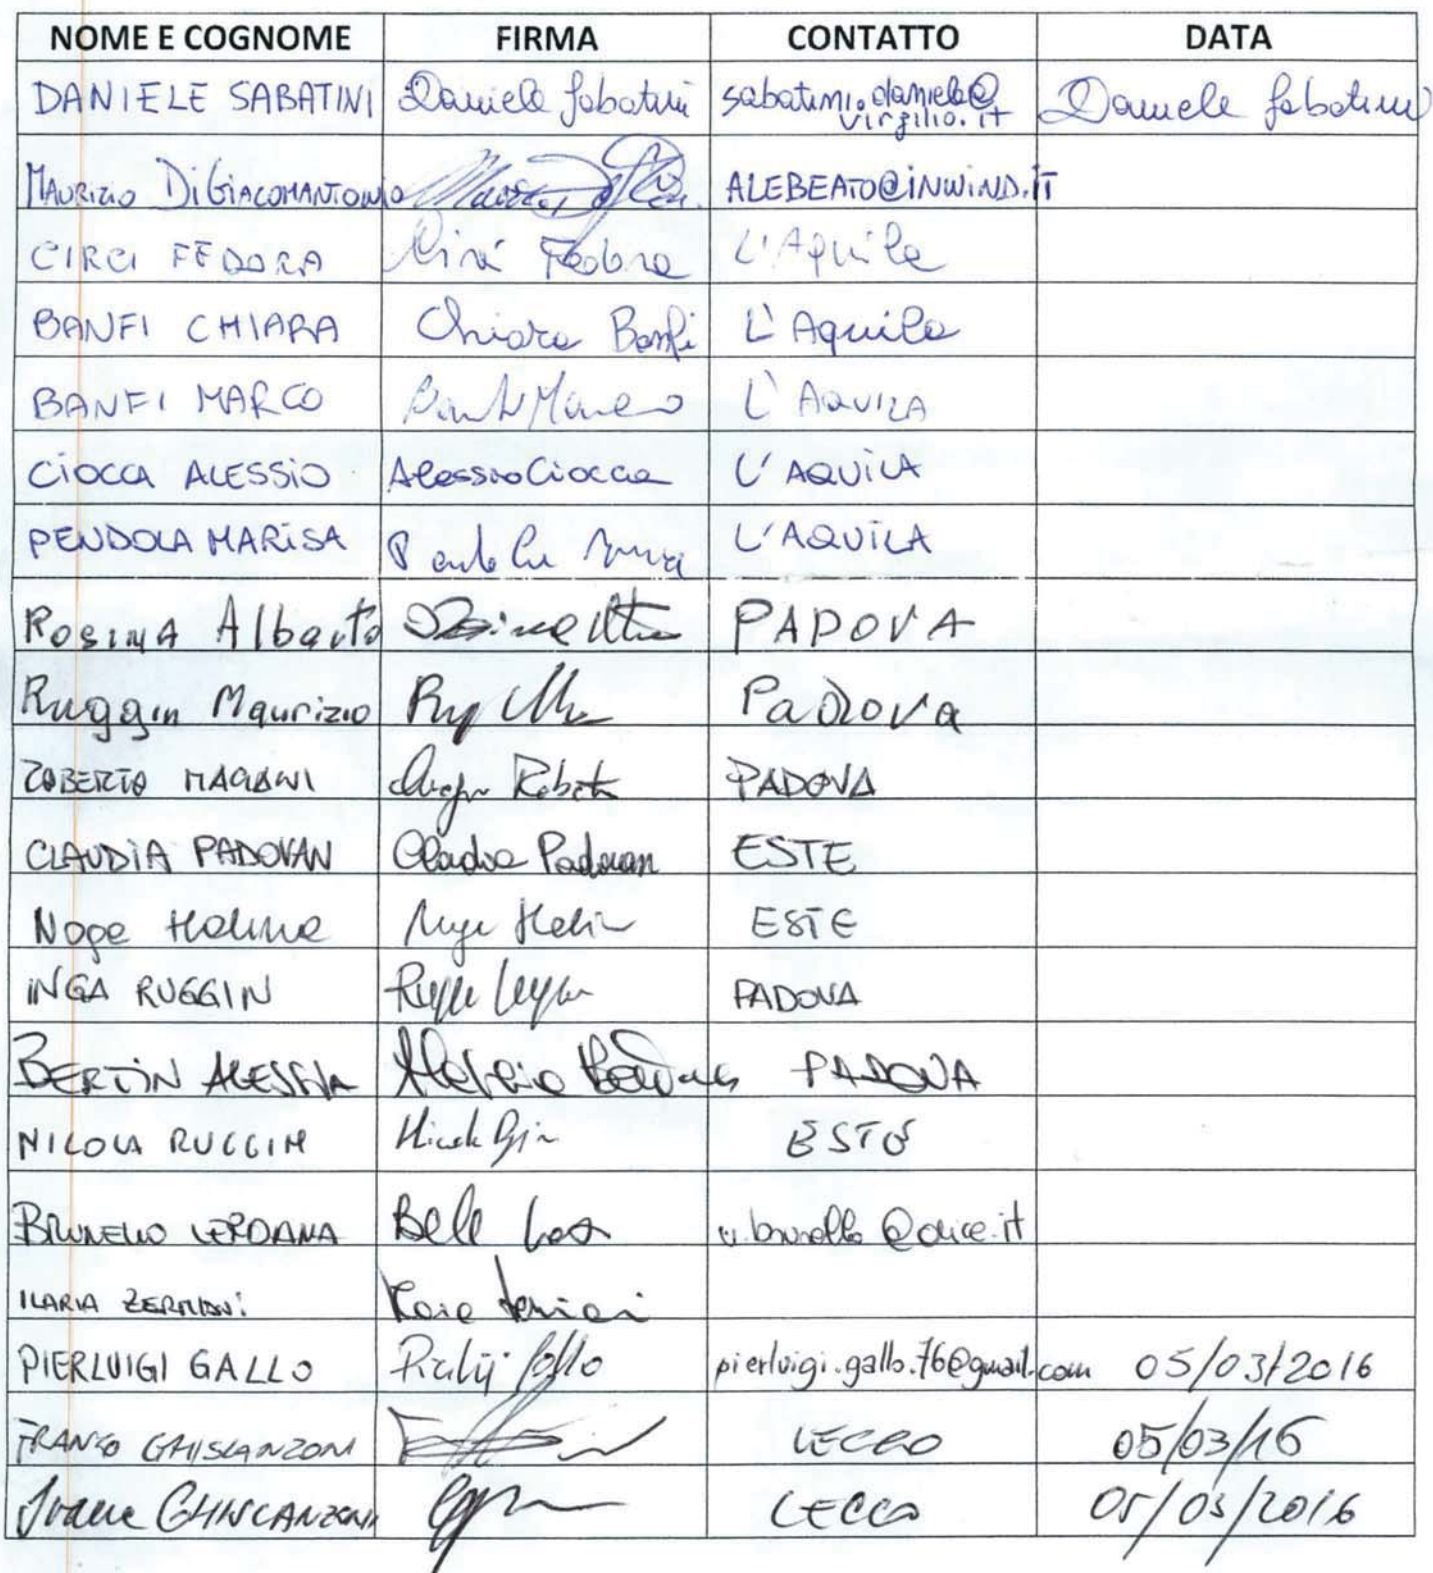 NOME E COGNOME FIRMA CONTATTO DATA
DANIELE SABATINI Daniele Sabatini sabatini.daniele@ Daniele Sabatini
virgilio.it
MAURIZIO DIGIACOMANTONIO ALEBEATO@INWIND.IT
CIRCI FEDORA Circi Fedora L'Aquila
BANFI CHIARA Chiara Banfi L'Aquila
BANFI MARCO Banfi Marco L'AQUILA
CIOCCA ALESSIO Alessio Ciocca L'AQUILA
PENDOLA MARISA L'AQUILA
ROSINA Alberto PADOVA
Ruggin Maurizio Padova
ROBERTO MAGAGNI PADOVA
CLAUDIA PADOVAN Claudia Padovan ESTE
Nope Halina ESTE
INGA RUGGIN PADOVA
BERTIN ALESSIA Alessia Bertin PADOVA
NICOLA RUGGIN ESTE
BRUNELLO LERDANA v.brunello@alice.it
ILARIA ZERMIANI
PIERLUIGI GALLO pierluigi.gallo.76@gmail.com 05/03/2016
FRANCO GHISLANZONI LECCO 05/03/16
Ivana GHISLANZONI LECCO 05/03/2016